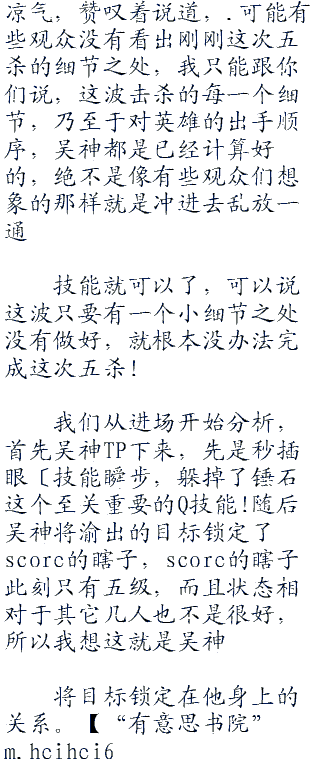 凉气，赞叹着说道，.可能有
些观众没有看出刚刚这次五
杀的细节之处，我只能跟你
们说，这波击杀的每一个细
节，乃至于对英雄的出手顺
序，吴神都是已经计算好
的，绝不是像有些观众们想
象的那样就是冲进去乱放一
通
技能就可以了，可以说
这波只要有一个小细节之处
没有做好，就根本没办法完
成这次五杀！
我们从进场开始分析，
首先吴神TP下来，先是秒插
眼〔技能瞬步，躲掉了锤石
这个至关重要的Q技能！随后
吴神将渝出的目标锁定了
scorc的瞎子，scorc的瞎子
此刻只有五级，而且状态相
对于其它几人也不是很好，
所以我想这就是吴神
将目标锁定在他身上的
关系。【“有意思书院”
m.hcihci6